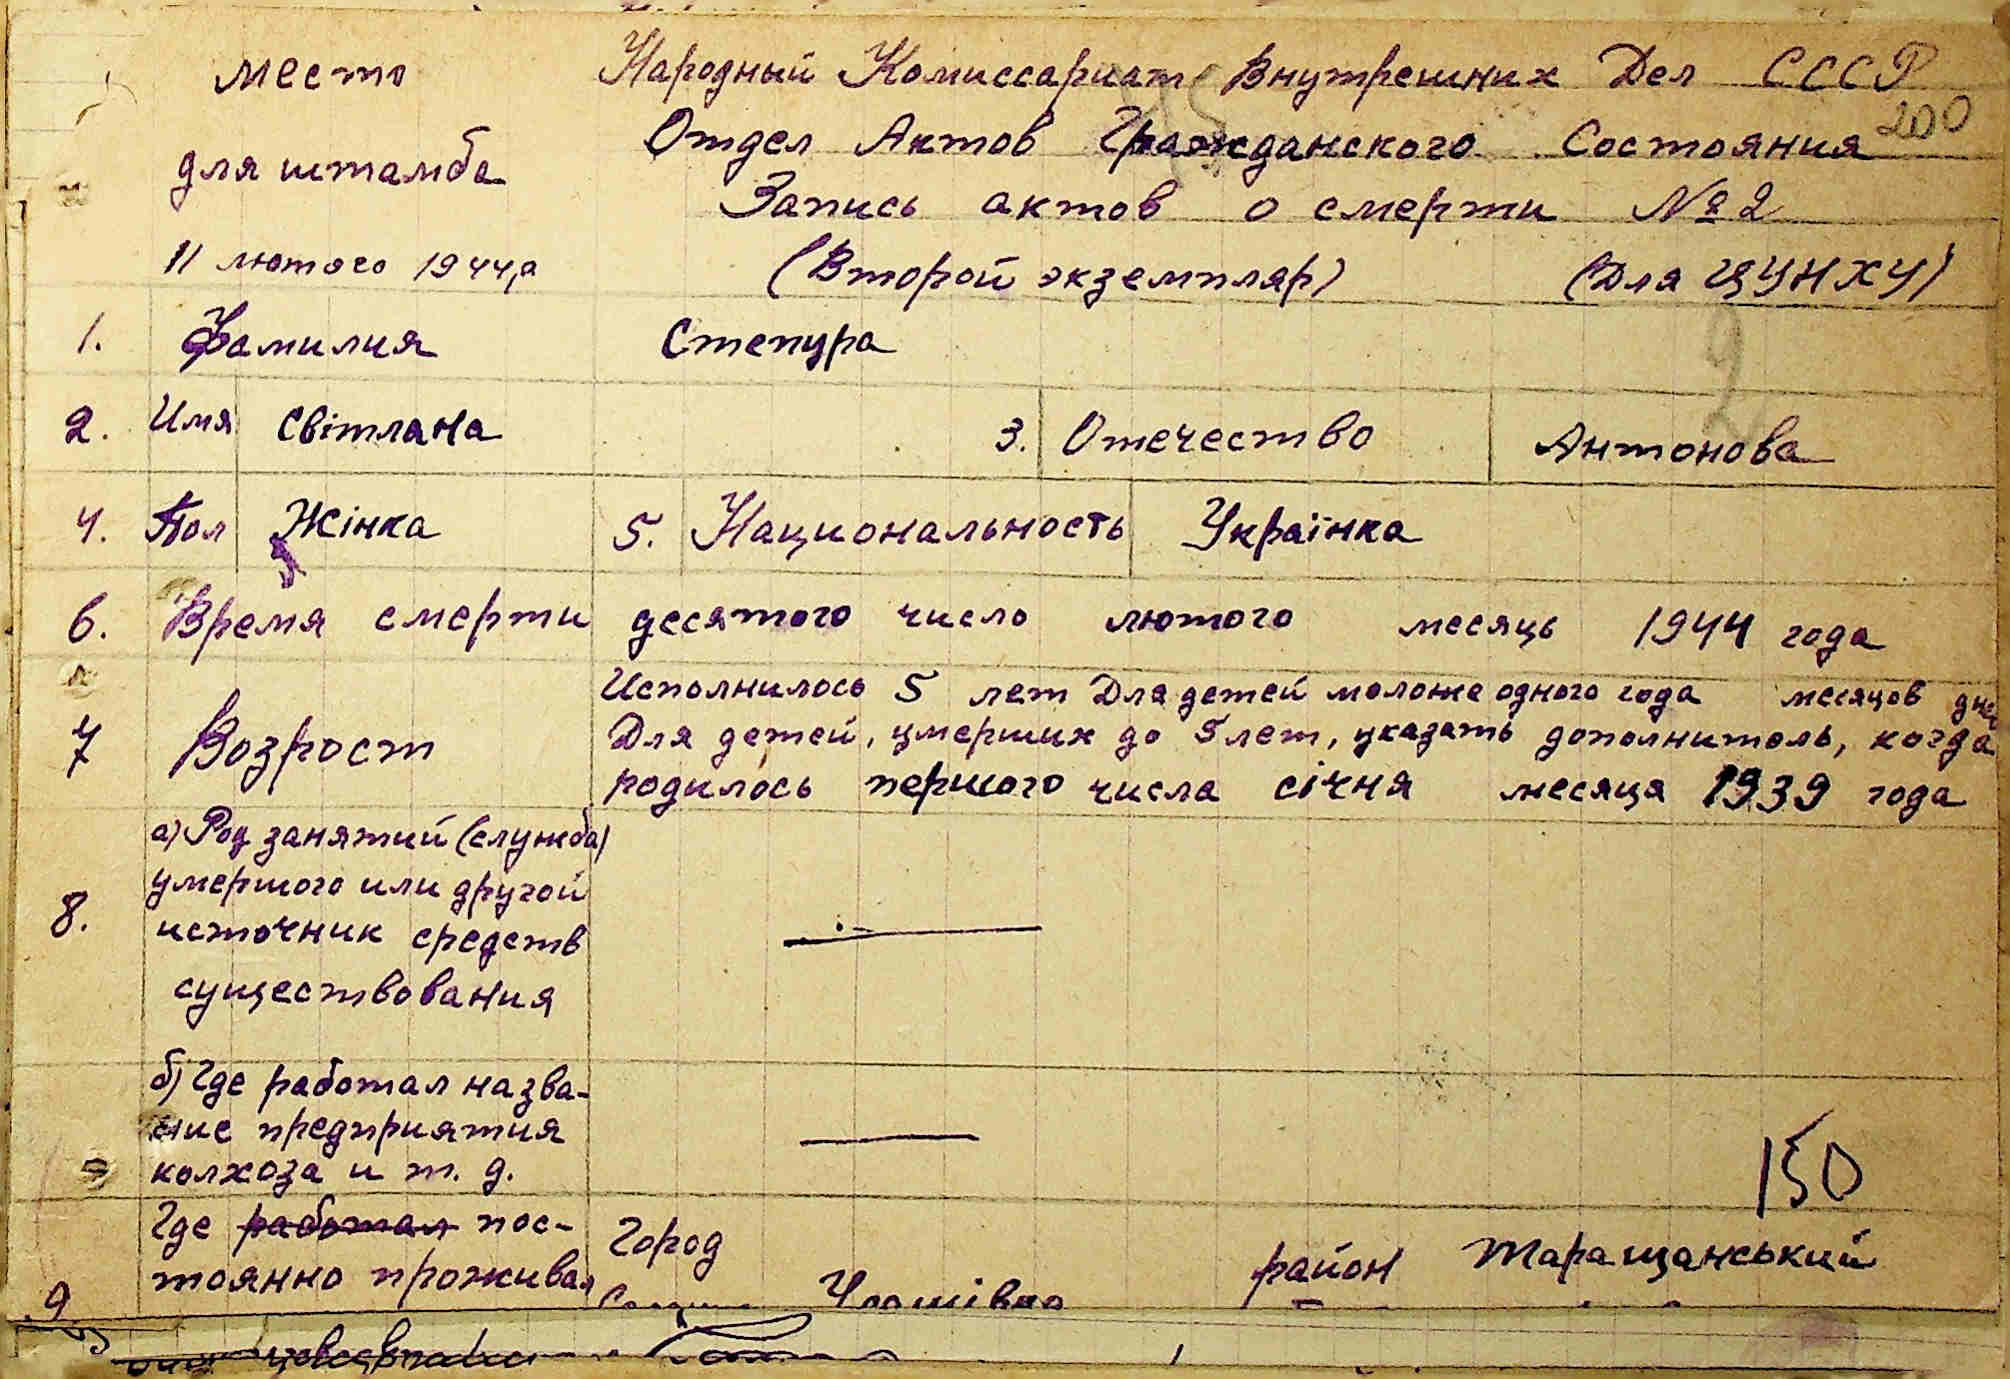 место Народный Комиссариат Внутрених Дел СССР
200
Отдел Актов Гражданского Состояния
для штамба
Запись актов о смерти № 2
11 лютого 1944 р
(Второй экземпляр) (Для ЦУНХУ)
1. Фамилия Степура
2
2. Имя Світлана 3. Отечество Антонова
4. Пол Жінка 5. Национальность Українка
6. Время смерти десятого число лютого месяць 1944 года
7 Возрост
Исполнилось 5 лет Для детей моложе одного года месяцов дней
Для детей, умерших до 5 лет, указать дополнитоль, когда
родилось першого числа січня месяця 1939 года
8.
а) Род занятий (служба)
умершого или другой
источник средств
существования
—
б) Где работал назва-
ние предприятия
колхоза и т. д.
—
150
9
Где работал пос-
тоянно проживал
Город
район Таращанський